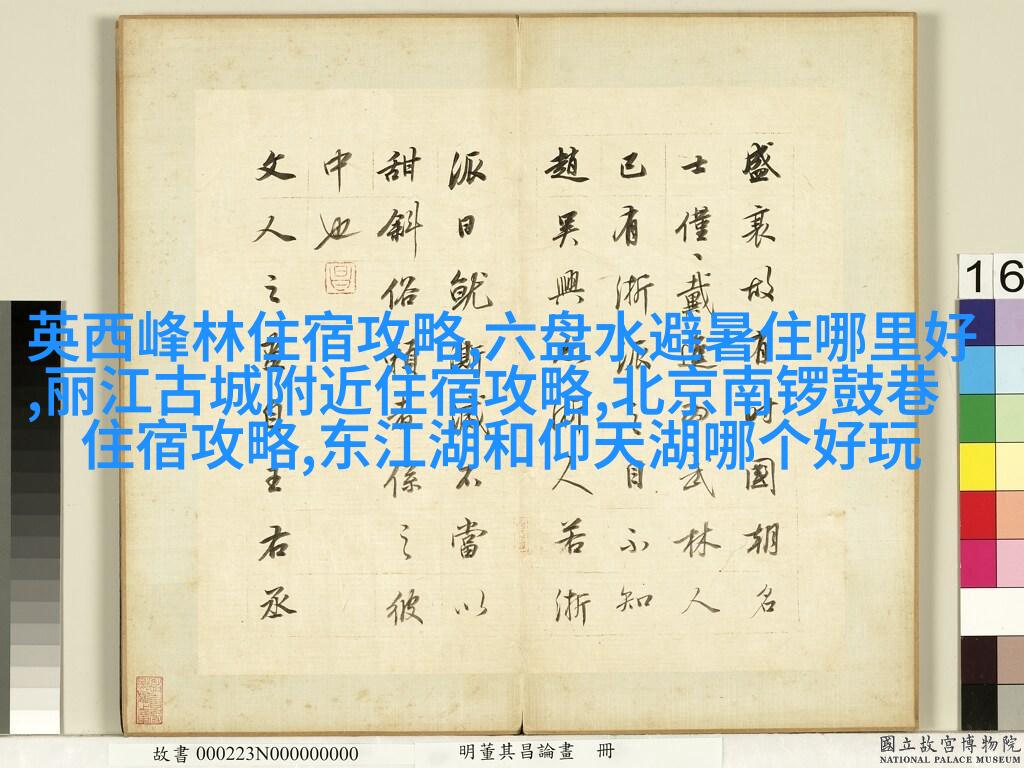 盛衰故有時國朝名
士僅僅戴進為武林人
已有浙派之目不知
趙吳興亦浙人若浙
派日就澌滅不當以
甜斜俗賴者係之彼
中也
文人之畫自王右丞
英西峰林住宿攻略,六盘水避暑住哪里好
,丽江古城附近住宿攻略,北京南锣鼓巷
住宿攻略,东江湖和仰天湖哪个好玩
16
故書 000223N000000000
明董其昌論畫 冊
國立故宮博物院
NATIONAL PALACE MUSEUM